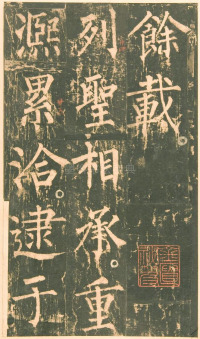 餘載。
列聖相承。重
熙累洽。逮于